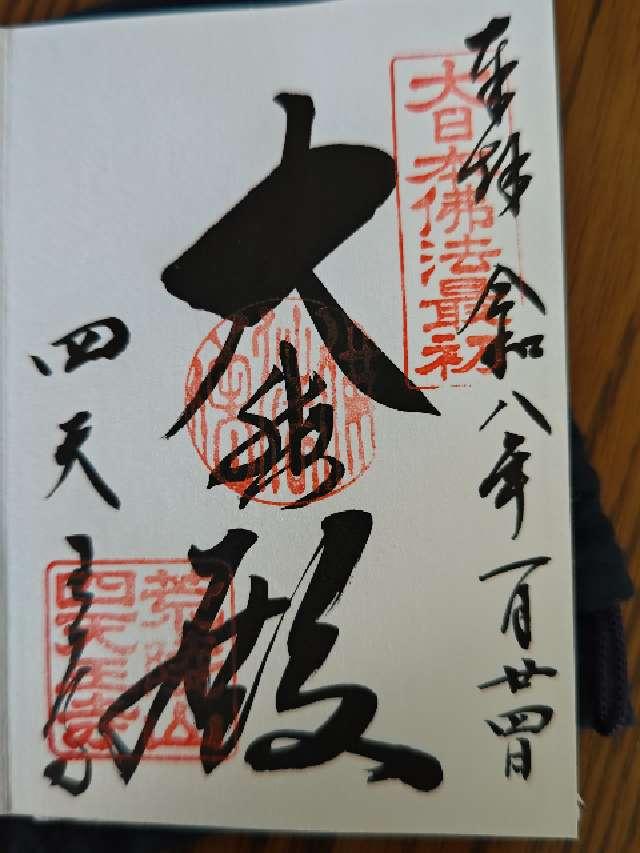 奉拝 令和八年一月廿四日
大日本佛法最初
大
殿
四天王寺
荒陵山
四天王寺